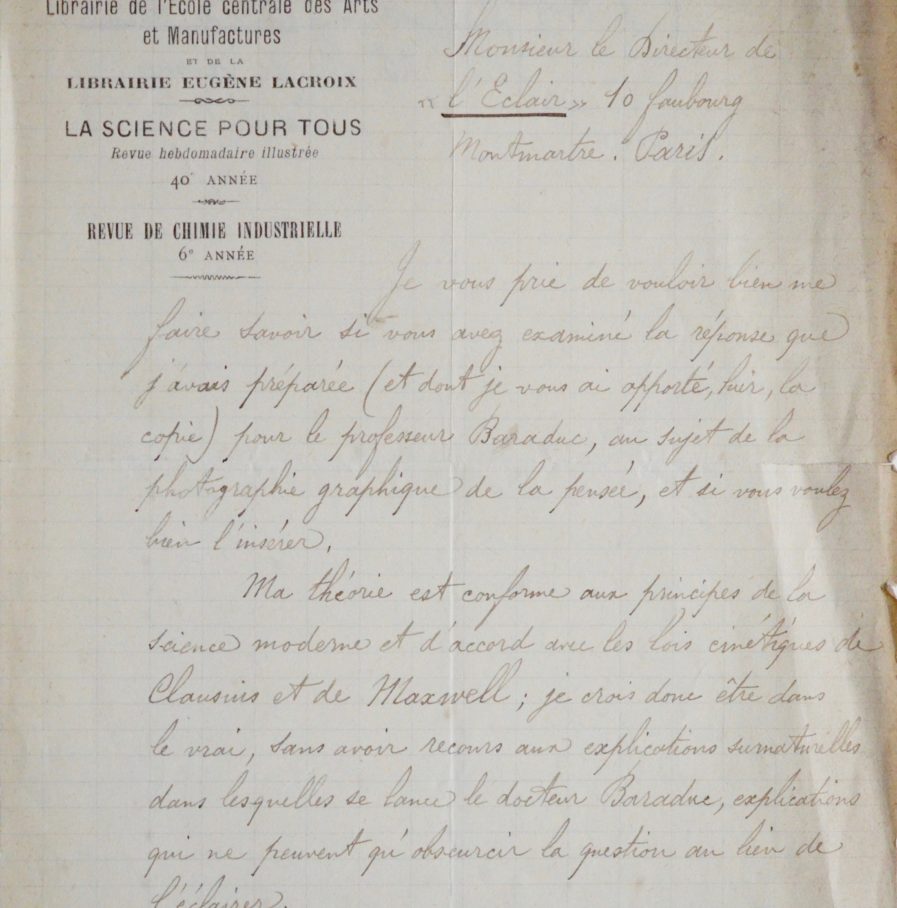 Librairie de l'Ecole centrale des Arts
et Manufactures
ET DE LA
LIBRAIRIE EUGÈNE LACROIX
LA SCIENCE POUR TOUS
Revue hebdomadaire illustrée
40e ANNÉE
REVUE DE CHIMIE INDUSTRIELLE
6e ANNÉE
Monsieur le Directeur de
"l'Eclair" 10 faubourg
Montmartre. Paris.
Je vous prie de vouloir bien me
faire savoir si vous avez examiné la réponse que
j'avais préparée (et dont je vous ai apporté, hier, la
copie) pour le professeur Baraduc, au sujet de la
photographie graphique de la pensée, et si vous voulez
bien l'insérer.
Ma théorie est conforme aux principes de la
science moderne et d'accord avec les lois cinétiques de
Clausius et de Maxwell ; je crois donc être dans
le vrai, sans avoir recours aux explications surnaturelles
dans lesquelles se lance le docteur Baraduc, explications
qui ne peuvent qu'obscurcir la question au lieu de
l'éclairer.